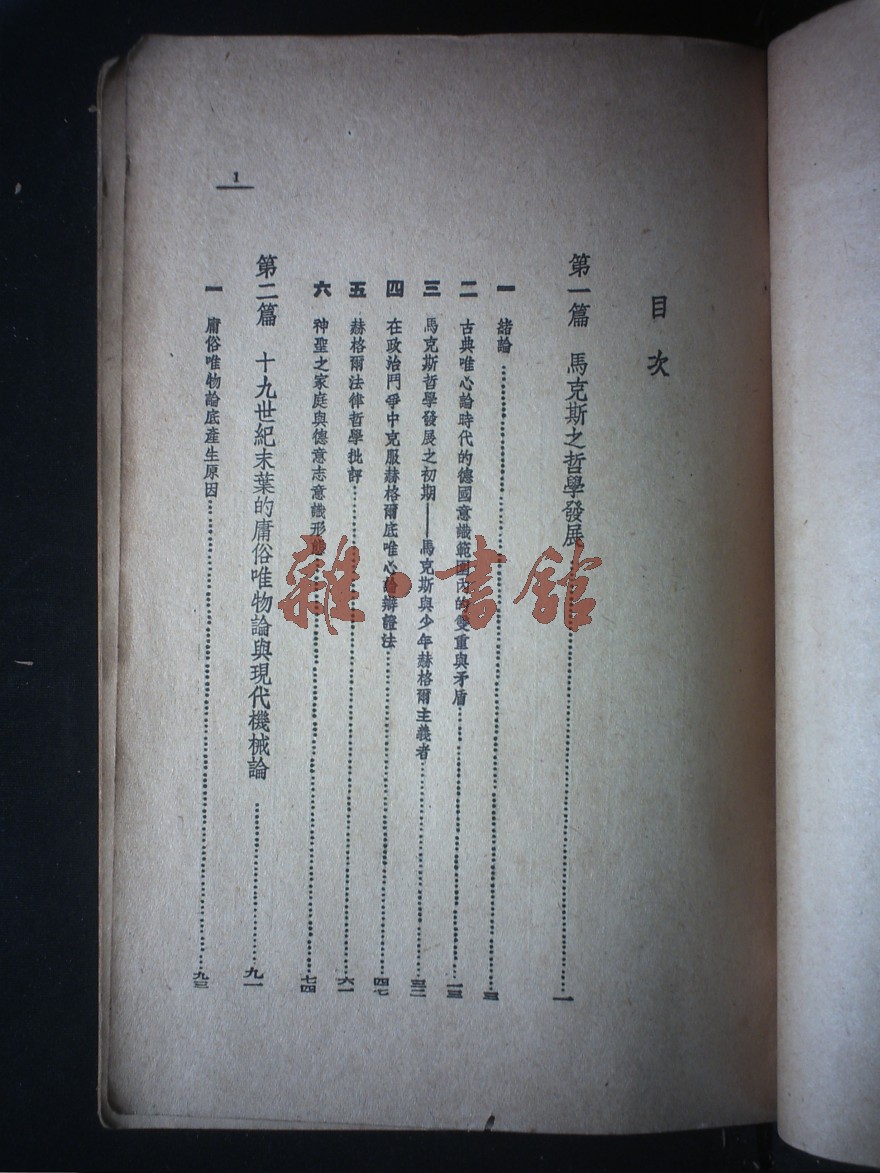 目次
第一篇 馬克斯之哲學發展……一
一 緒論……三
二 古典唯心論時代的德國意識範圍內的雙重與矛盾……一三
三 馬克斯哲學發展之初期——馬克斯與少年赫格爾主義者……三二
四 在政治鬥爭中克服赫格爾底唯心論辯證法……四七
五 赫格爾法律哲學批評……六一
六 神聖之家庭與德意志意識形態……七四
第二篇 十九世紀末葉的庸俗唯物論與現代機械論……九一
一 庸俗唯物論底產生原因……九三
1
雜·書館